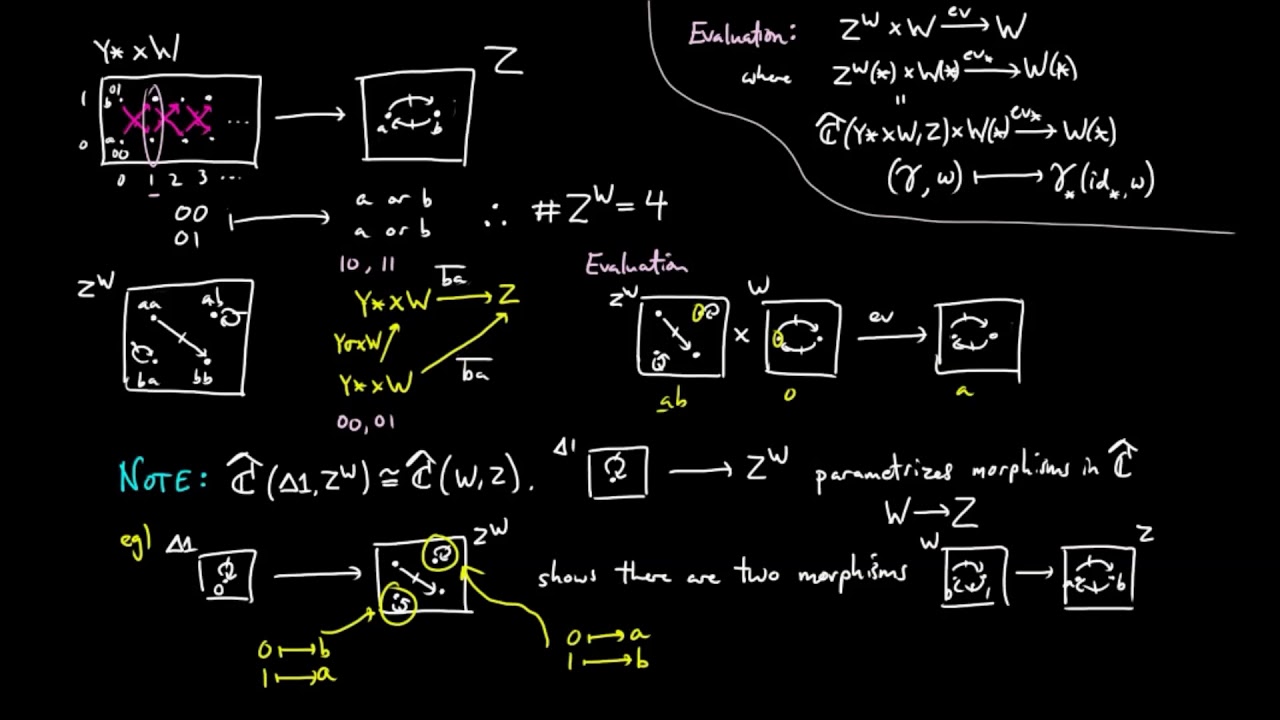 Y* x W
Z
01
b
a
00
1
0
...
0 1 2 3 ...
a b
00 ⟼ a or b
01 a or b
∴ # Z^W = 4
Evaluation: Z^W × W →^ev W
where Z^W(*) × W(*) →^ev* W(*)
"
Ĉ(Y* × W, Z) × W(*) →^ev* W(*)
(γ, w) ⟼ γ_*(id_*, w)
Z^W
aa ab
ba bb
10, 11
Y* × W →^ba Z
Yσ × W
Y* × W
ba
00, 01
Evaluation
Z^W × W →^ev
ab 0 a
NOTE: Ĉ(Δ1, Z^W) ≅ Ĉ(W, Z). Δ1 → Z^W parametrizes morphisms in Ĉ
W → Z
eg) Δ1 0 → Z^W shows there are two morphisms W b 1 → Z a b
0 ⟼ b
1 ⟼ a
0 ⟼ a
1 ⟼ b